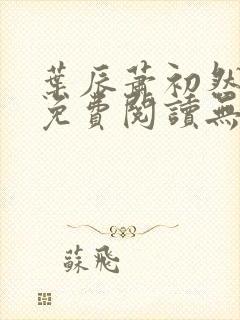 葉辰蕭初然
免費閱讀無
蘇飛